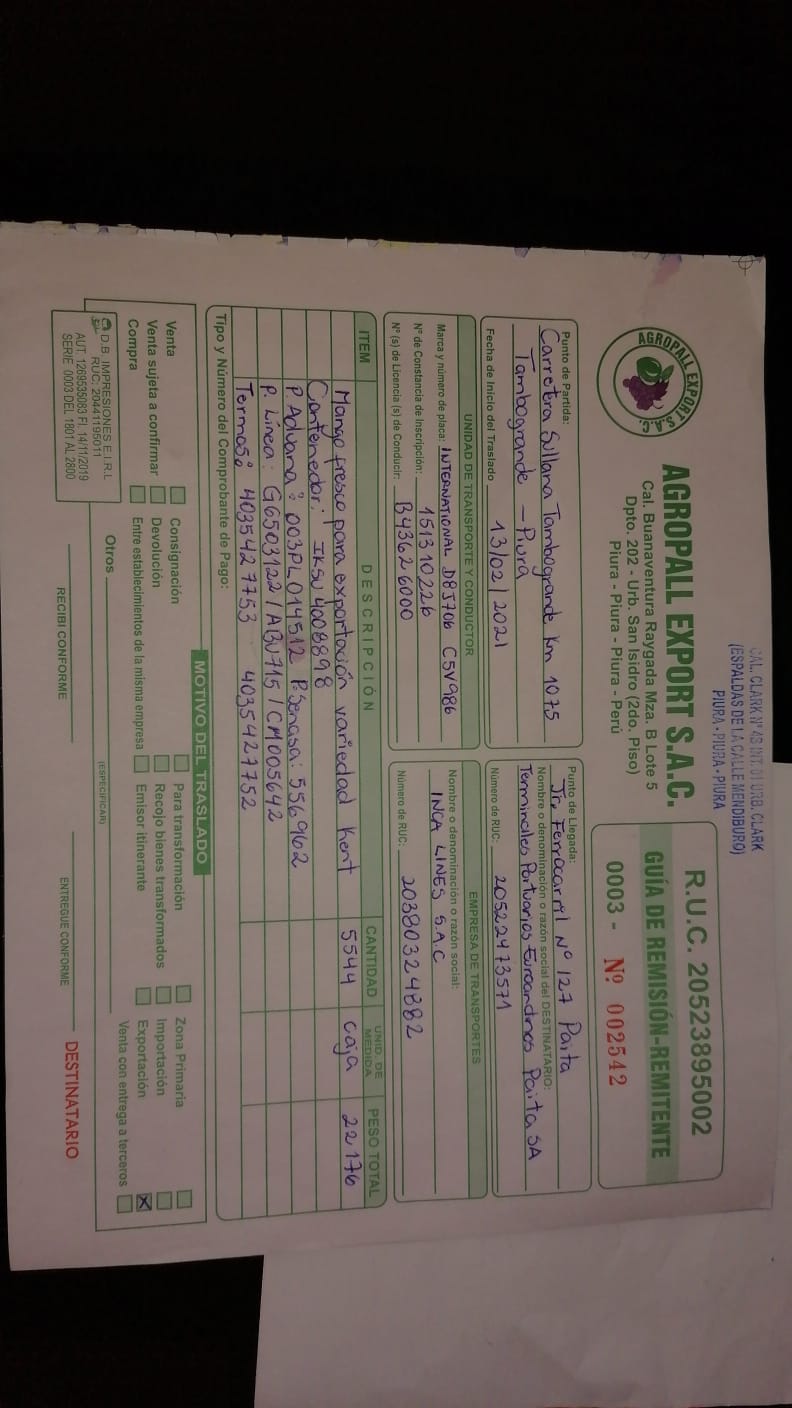 CAL. CLARK Nº 43 INT. 01 URB. CLARK
(ESPALDAS DE LA CALLE MENDIBURO)
PIURA - PIURA - PIURA
AGROPALL EXPORT S.A.C.
AGROPALL EXPORT S.A.C.
Cal. Buanaventura Raygada Mza. B Lote 5
Dpto. 202 - Urb. San Isidro (2do. Piso)
Piura - Piura - Piura - Perú
R.U.C. 20523895002
GUÍA DE REMISIÓN-REMITENTE
0003 - Nº 002542
Punto de Partida:
Carretera Sullana Tambogrande Km 1075
Tambogrande - Piura
Fecha de Inicio del Traslado 13/02/2021
Punto de Llegada:
Jr. Ferrocarril Nº 127 Paita
Nombre o denominación o razón social del DESTINATARIO:
Terminales Portuarios Euroandinos Paita SA
Número de RUC: 20522473571
UNIDAD DE TRANSPORTE Y CONDUCTOR
Marca y número de placa: INTERNATIONAL D8J706 C5V986
Nº de Constancia de Inscripción: 151310226
Nº (s) de Licencia (s) de Conducir: B43626000
EMPRESA DE TRANSPORTES
Nombre o denominación o razón social:
INCA LINES S.A.C
Número de RUC: 20380324882
ITEM DESCRIPCIÓN CANTIDAD UNID. DE MEDIDA PESO TOTAL
Mango fresco para exportación variedad Kent 5544 caja 22176
Contenedor: IKSU 4008898
P. Aduana: 003PL014512 P. Senasa: 556962
P. Línea: G6503122 / ABU715 / CM005642
Termos: 4035427753 4035427752
Tipo y Número del Comprobante de Pago:
MOTIVO DEL TRASLADO
Venta Consignación Para transformación Zona Primaria
Venta sujeta a confirmar Devolución Recojo bienes transformados Importación
Compra Entre establecimientos de la misma empresa Emisor itinerante Exportación X
Otros Venta con entrega a terceros
(ESPECIFICAR)
D.B. IMPRESIONES E.I.R.L
RUC: 20441195011
AUT. 1269535083 FI. 14/11/2019
SERIE 0003 DEL 1801 AL 2800
RECIBI CONFORME
ENTREGUE CONFORME
DESTINATARIO